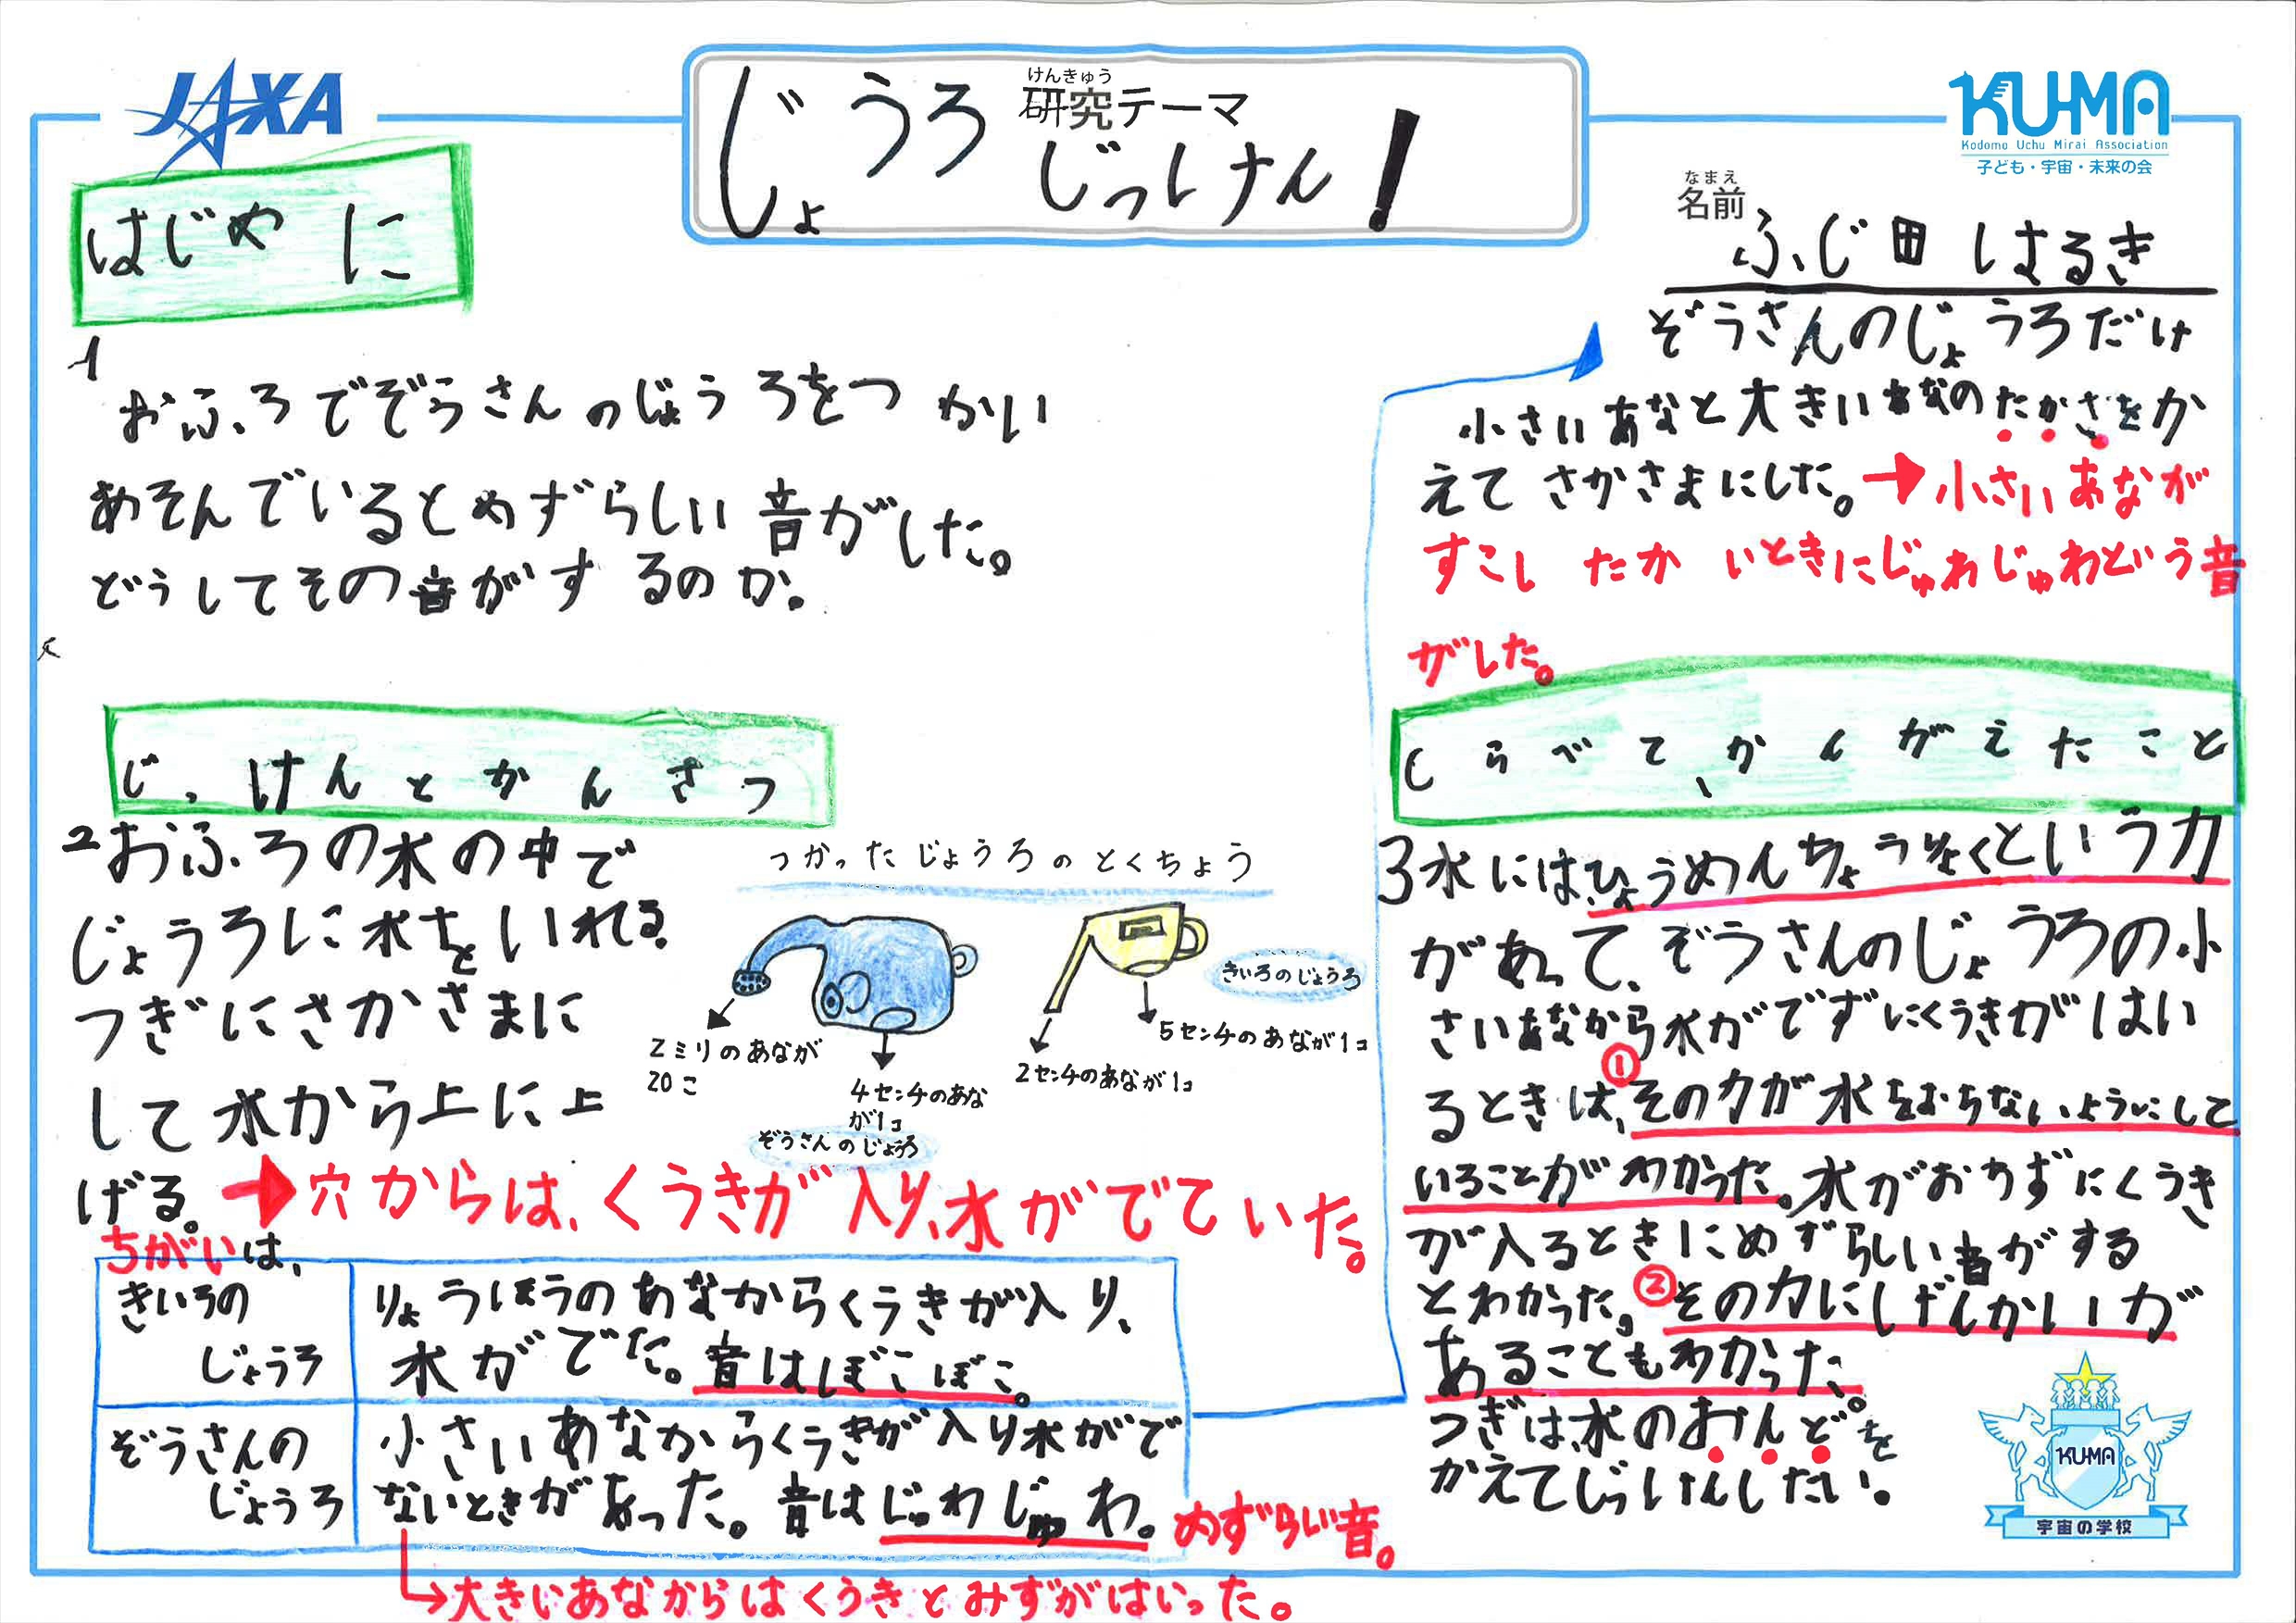 JAXA
けんきゅう
研究テーマ
じょうろ
じっけん!
KUMA
Kodomo Uchu Mirai Association
子ども・宇宙・未来の会
なまえ
名前
ふじ田 はるき
はじめに
1
おふろでぞうさんのじょうろをつかい
あそんでいるとめずらしい音がした。
どうしてその音がするのか。
じっけんとかんさつ
2おふろの水の中で
じょうろに水をいれる。
つぎにさかさまに
して水から上に上
げる。→穴からは、くうきが入り、水がでていた。
つかったじょうろのとくちょう
2ミリのあなが
20こ
4センチのあな
が1コ
ぞうさんのじょうろ
2センチのあなが1コ
5センチのあなが1コ
きいろのじょうろ
ちがいは、
きいろの
じょうろ
りょうほうのあなからくうきが入り、
水がでた。音はぼこぼこ。
ぞうさんの
じょうろ
小さいあなからくうきが入り水がで
ないときがあった。音はじゅわじゅわ。めずらしい音。
→大きいあなからはくうきとみずがはいった。
ぞうさんのじょうろだけ
小さいあなと大きいあなのたかさをか
えてさかさまにした。→小さいあなが
すこしたかいときにじゅわじゅわという音
がした。
しらべて、かんがえたこと
3水には、ひょうめんちょうりょくという力
があって、ぞうさんのじょうろの小
さいあなから水がでずにくうきがはい
るときは、①その力が水をおちないようにして
いることがわかった。水がおちずにくうき
が入るときにめずらしい音がする
とわかった。②その力にげんかいが
あることもわかった。
つぎは、水のおんどを
かえてじっけんしたい。
KUMA
宇宙の学校